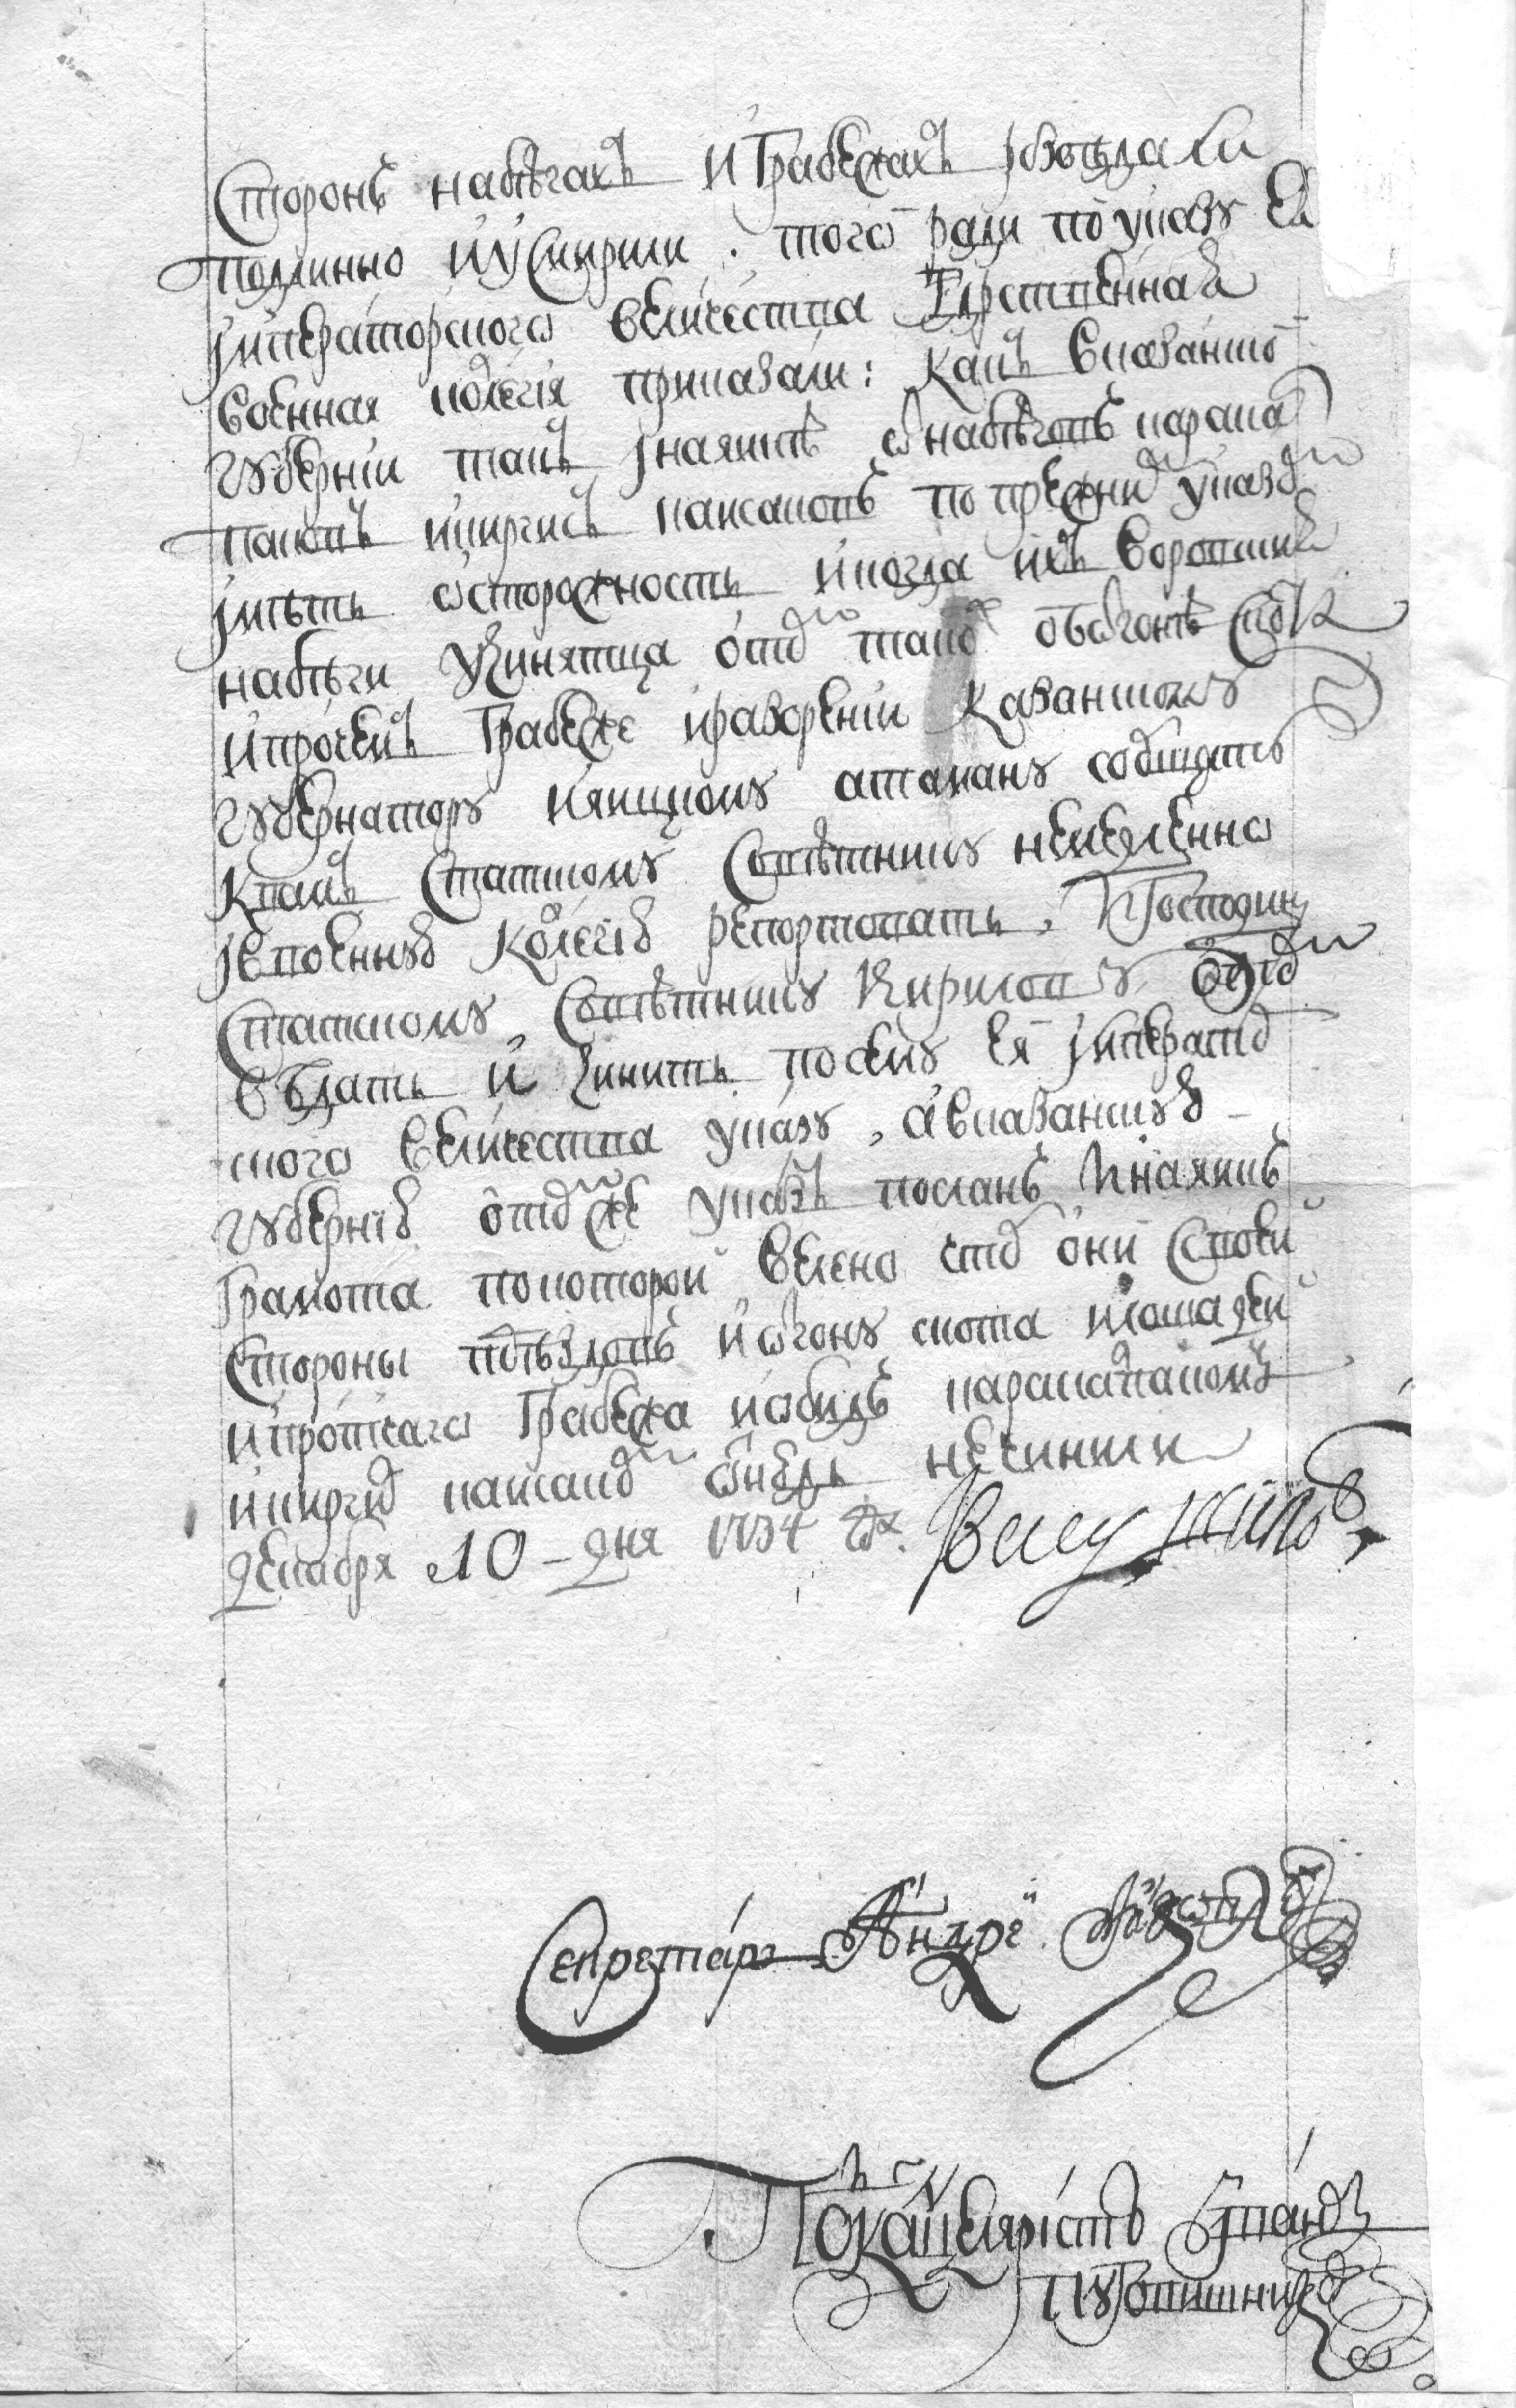 Стороны набегахъ и Грабежахъ
подлинно и усмирили. того ради по указу Ея
Імператорского величества Государственная
военная колегія приказали: какъ вказанской
губерніи такъ инаяике от набегов каракал
паковъ икиргисъ каисаков по прежним указом
иметь осторожность икогда ихъ воровския
набеги учинятца отом також о отгоне скота
ипрочемъ Грабеже иразорении Казанскому
губернатору ияицкому атаману сообщать
Кнамъ Статскому Советнику немедленно
ивоенную Колегию репортовать, иГосподину
Статскому Советнику Кирилову отом
ведать и чинить посему ея імператор
ского величества указу, авказанскую
губернию отом же указъ посланъ инаяикъ
Грамота покоторой велено чтоб они Своей
Стороны подъездов и отгону скота илошадей
ипротчаго Грабежа иобидъ каракалпакомъ
икиргис каисаком отнюдь нечинили
декабря 10 - дня 1734 году.
Секретарь Андрей
Подканцеляристъ Степанъ